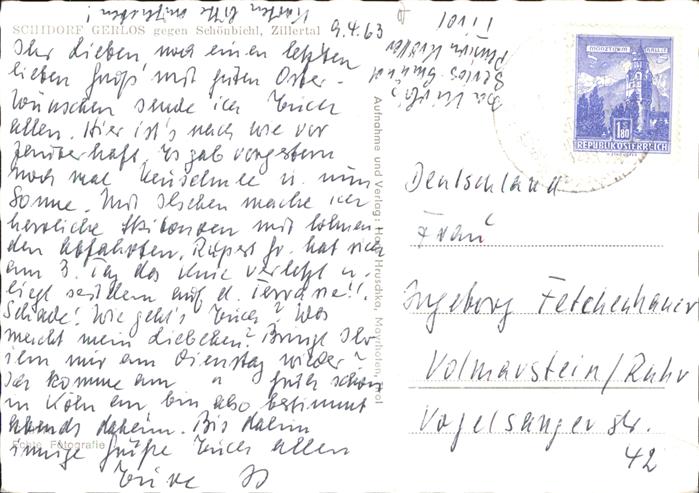 Karten bitte aufheben!
SCHIDORF GERLOS gegen Schönbichl, Zillertal
9.4.63
Ihr Lieben noch einen letzten
lieben Gruß mit guten Oster-
wünschen sende ich Euch
allen. Hier ist's nach wie vor
zauberhaft, es gab vorgestern
noch mal Neuschnee u. nun
Sonne. Mit Ilschen mache ich
herrliche Skitouren mit lohnen-
den Abfahrten. Rupert jr. hat sich
am 3. Tag das Knie verletzt u.
liegt seitdem auf d. Terrasse!!
Schade! Wie geht's Euch? Was
macht mein Liebchen? Bringt Ihr
ihn mir am Dienstag wieder?
Ich komme am " früh schon
in Köln an, bin also bestimmt
abends daheim. Bis dahin
innige Grüße Euch allen
Eure
Echte Fotografie
Aufnahme und Verlag: Hans Hruschka, Mayrhofen, Tirol
MÜNZTURM HALL I.T.
1.80
REPUBLIK ÖSTERREICH
Deutschland
Frau
Ingeborg Fetchenhauer
Volmarstein/Ruhr
Vogelsanger Str.
42